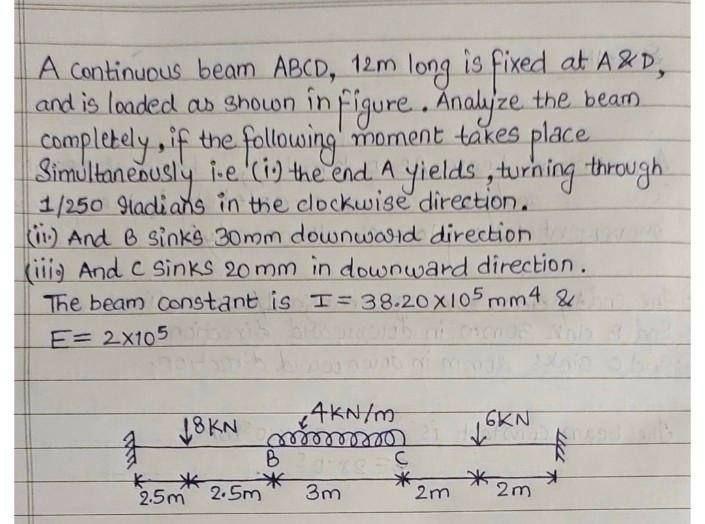 A continuous beam ABCD, 12m long is fixed at A & D,
and is loaded as shown in figure. Analyze the beam
completely, if the following moment takes place
Simultaneously i.e (i.) the end A yields, turning through
1/250 radians in the clockwise direction.
(ii.) And B sinks 30mm downward direction
(iii) And C sinks 20mm in downward direction.
The beam constant is I = 38.20×10⁵ mm⁴ &
E = 2×10⁵
8KN 4KN/m 6KN
B C
2.5m 2.5m 3m 2m 2m